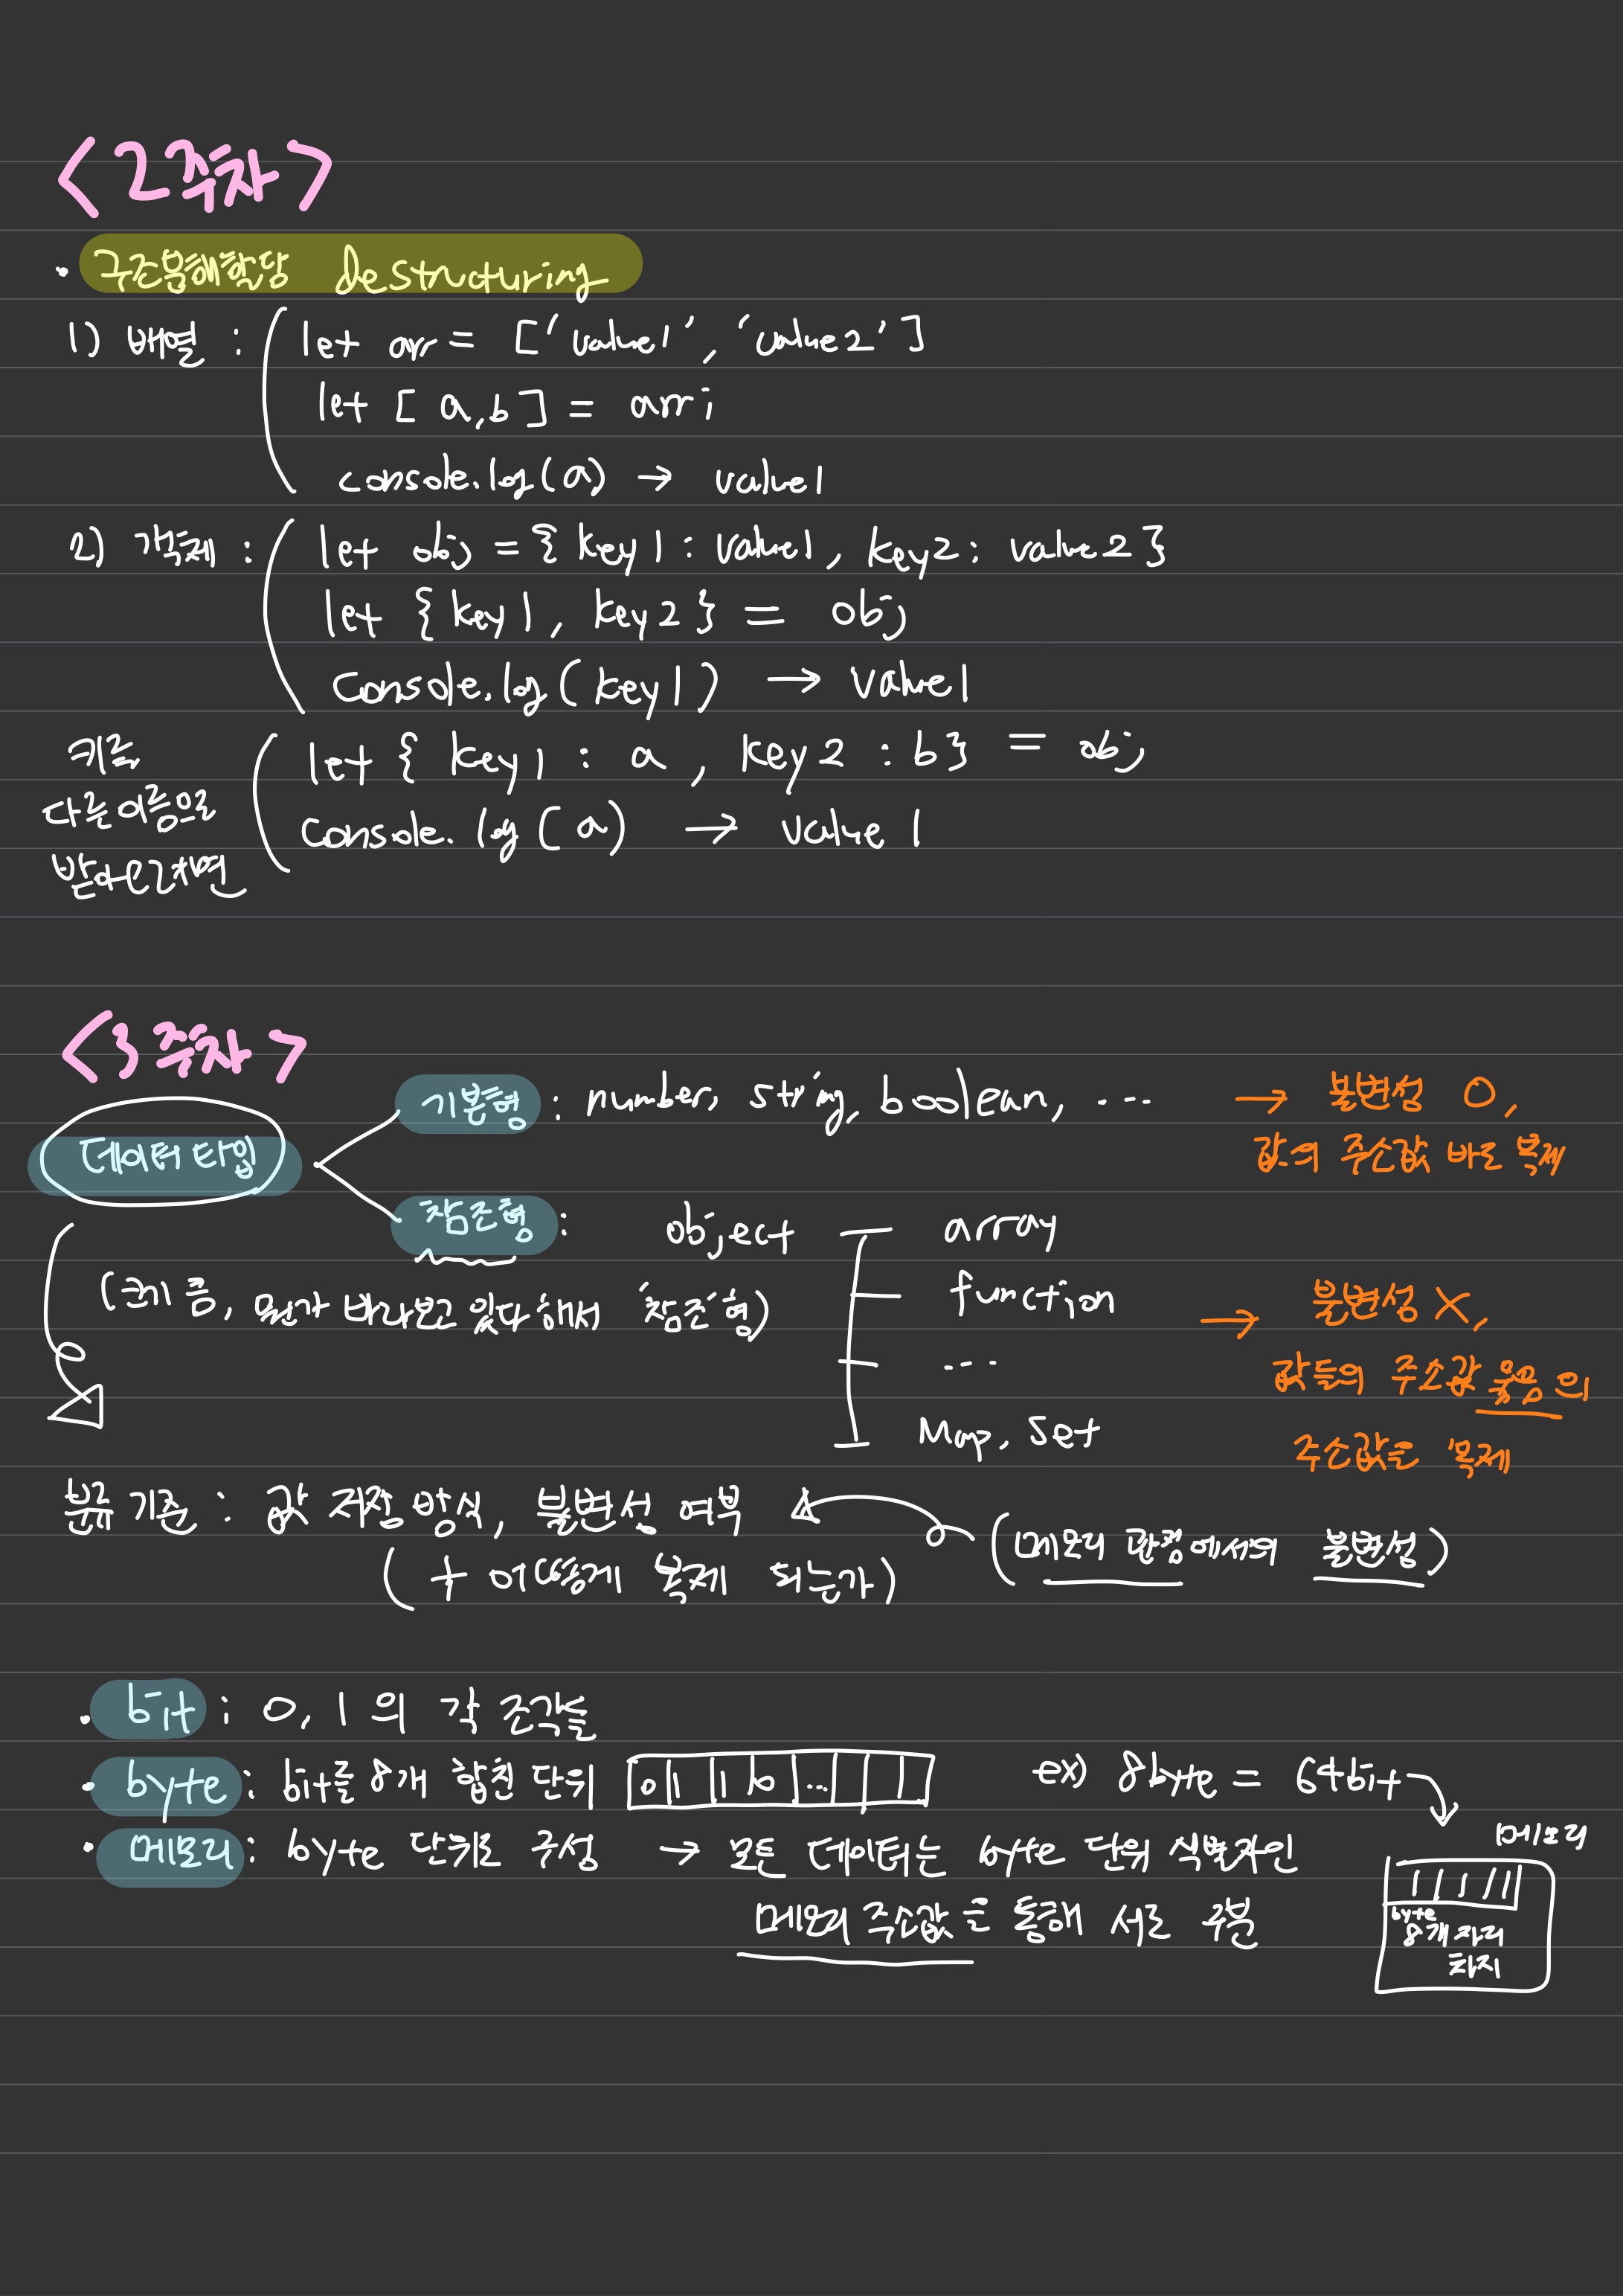 <2주차>
· 구조분해할당 destructuring
1) 배열 : let arr = ['value1', 'value2']
let [a,b] = arr;
console.log(a) → value1
2) 객체 : let obj = {key1 : value1, key2 : value2}
let {key1, key2} = obj
console.log(key1) → value1
키를
다른이름으로
받아온다면
let {key1 : a, key2 : b} = obj
console.log(a) → value1
<3주차>
데이터 타입
기본형 : number, string, boolean, ... → 불변성 O,
값의 주소값 바로 복제
참조형 : object
array
function
...
Map, Set
(외 중, 뭔가 바라보고 있다 해서 '참조형')
→ 불변성 X,
값들의 주소값 묶음의
주소값을 복제
분류 기준 : 값 저장 방식, 불변성 여부
(+ 어떻게 복제 되는가)
(메모리 관점에서의 불변성)
· bit : 0, 1의 각 조각들
· byte : bit를 8개 합친 단위
0 1 1 0 ...
ex) 8byte = 64bit
· 메모리 : byte 단위로 구성 → 모든 데이터는 byte 단위 식별자인
메모리 주소값을 통해 서로 구분
메모리
byte
8개 자리
차지